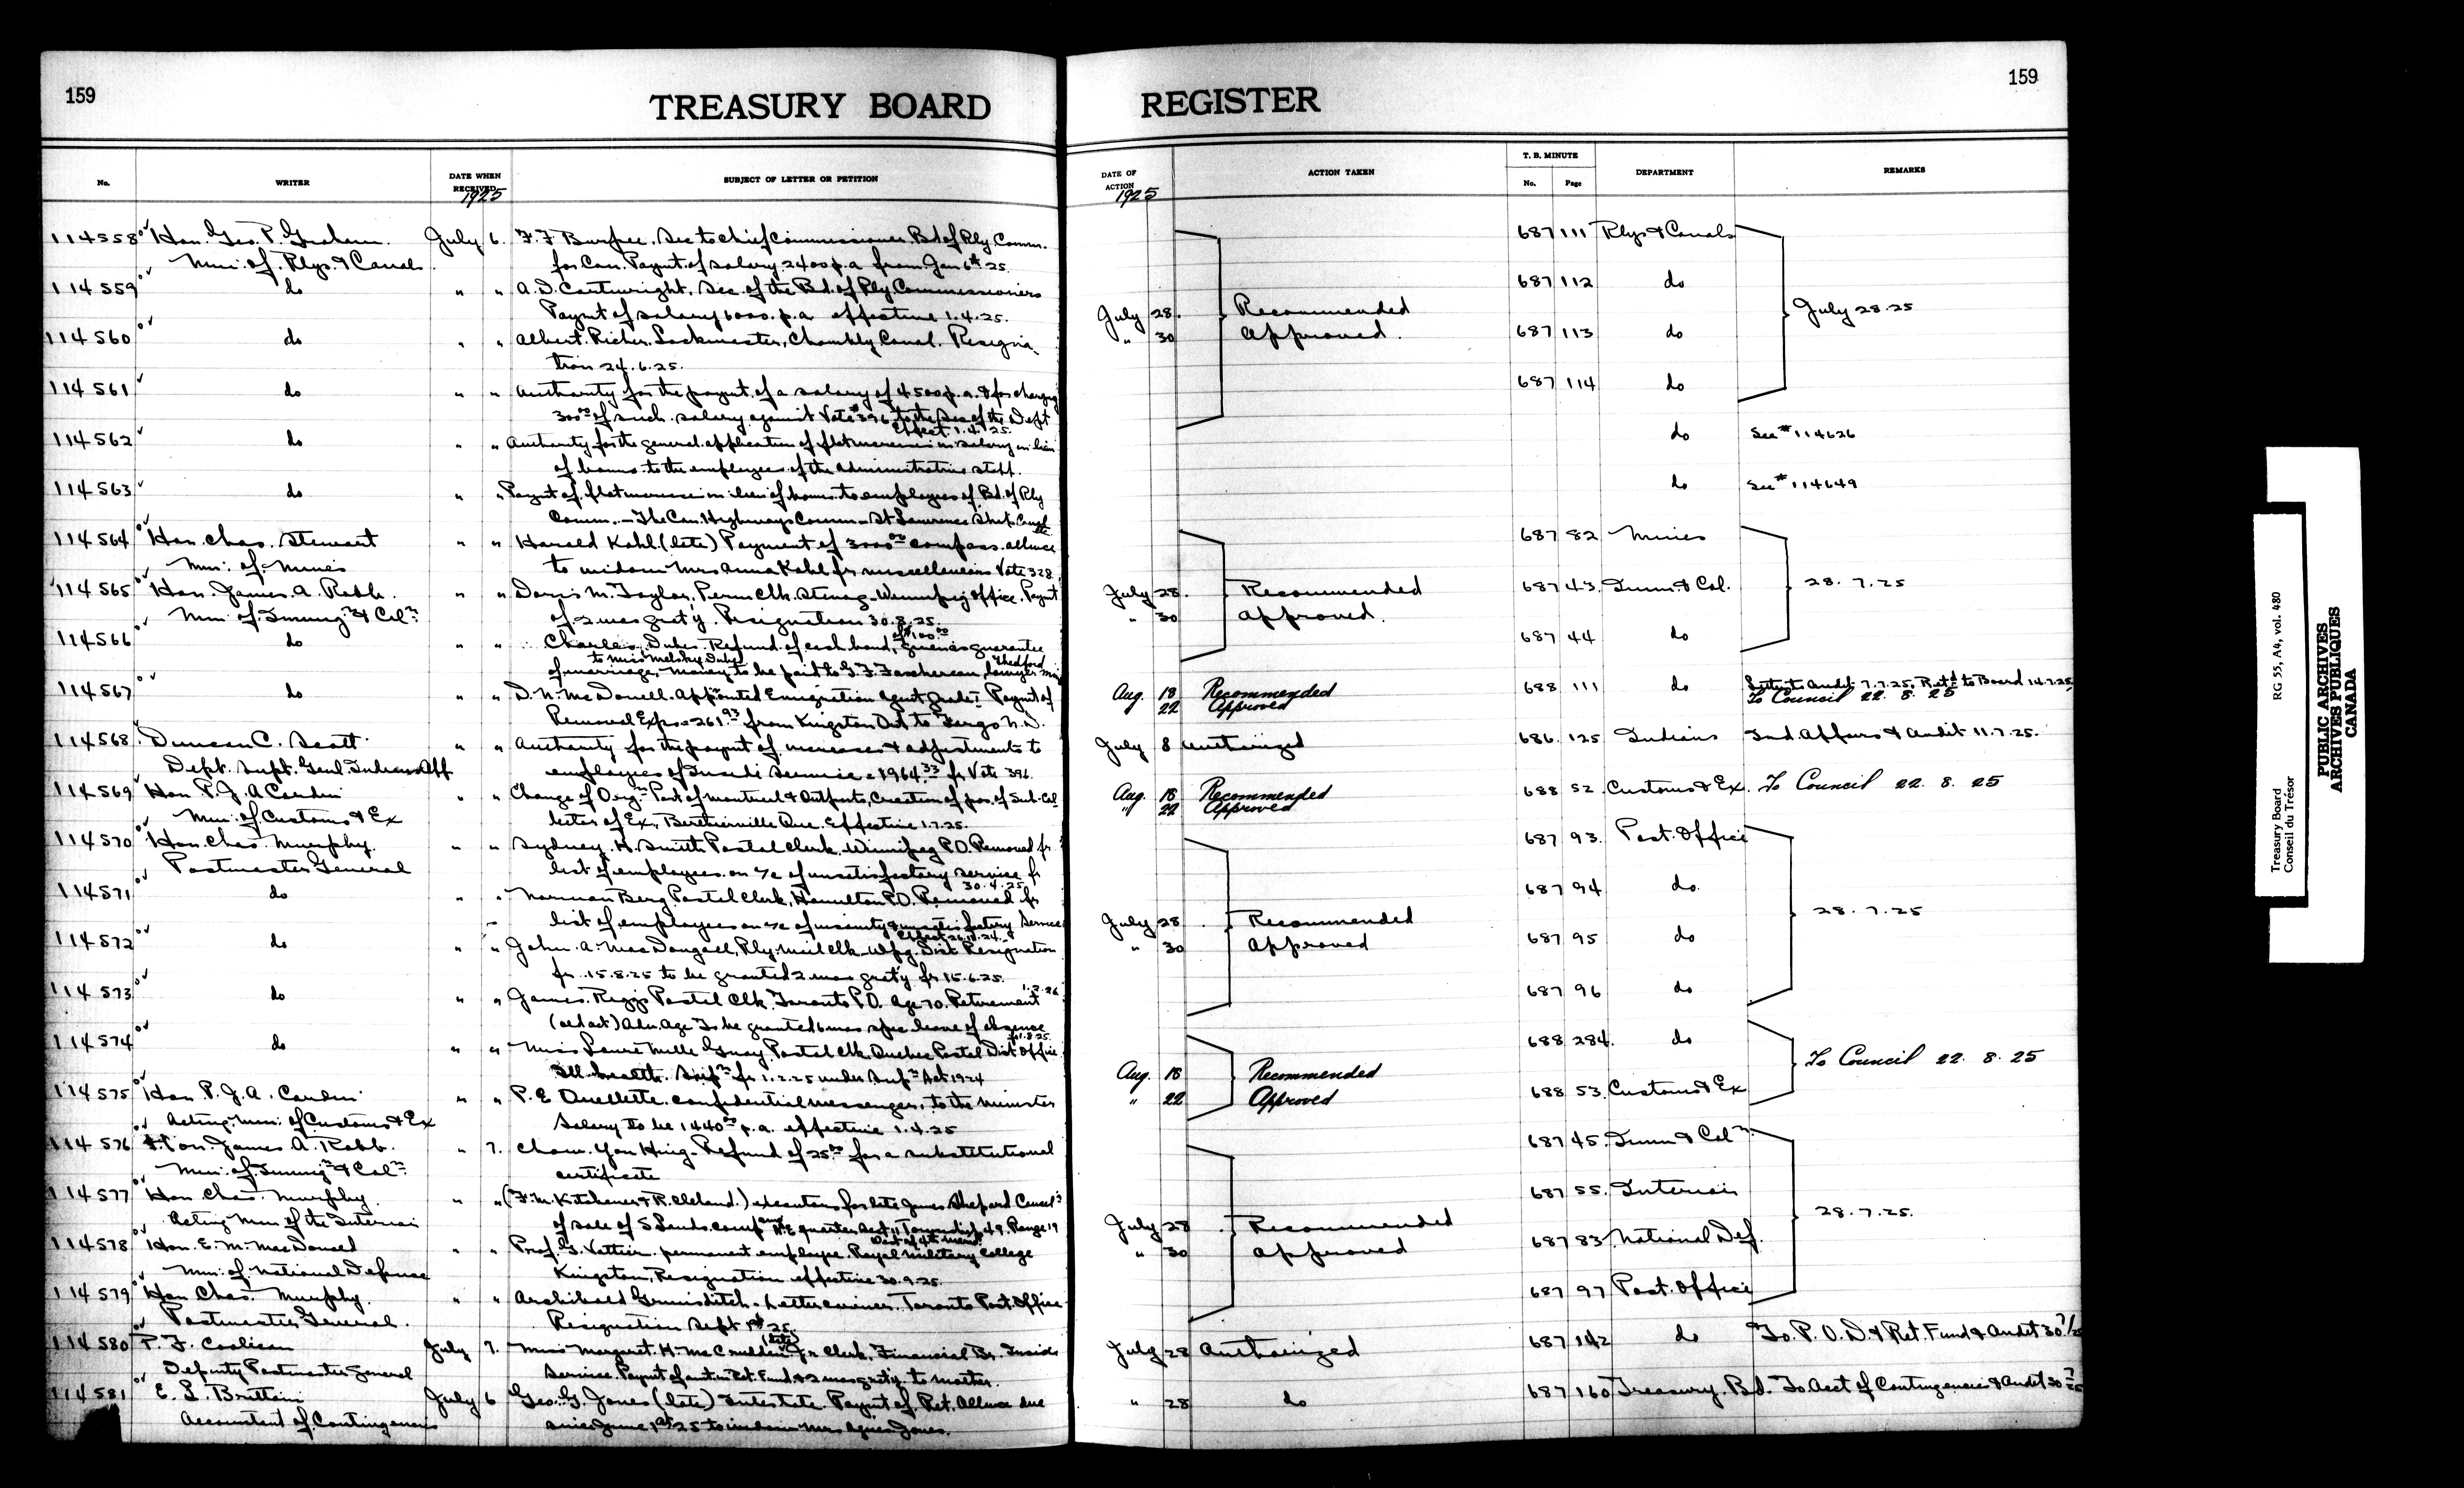 159
TREASURY BOARD
No.
WRITER
DATE WHEN RECEIVED
SUBJECT OF LETTER OR PETITION
1925
114558 Hon. Geo. P. Graham July 6. F. F Burpee. Sec to Chief Commissioner Bd of Rly. Comm.
Min. of. Rlys. & Canals. for Can. Paymt. of salary 2400 p.a. from Jan 6th 25.
114559 do " " A. D. Cartwright. Sec. of the Bd. of Rly Commissioners
Paymt of salary 6000. p.a. effective 1.4.25.
114560 do " " Albert Richer. Lockmaster, Chambly Canal. Resigna-
tion 24.6.25.
114561 do " " Authority for the paymt. of a salary of 4500 p.a. & for charging
300.00 of such. salary against Vote #396 to the Sec of the Dept
Effect. 1.4.25.
114562 do " " Authority for the general application of flat increase in salary in lieu
of bonus to the employees of the administrative staff.
114563 do " " Paymt of. flat increase in lieu of bonus. to employees of Bd. of Rly
Comm. - The Can. Highways Comm - St Lawrence Ship Canal
114564 Hon. Chas. Stewart " " Harold Kahl (late) Payment of 3000.00 compass. allnce
Min: of. Mines to widow Mrs Anna Kahl fr miscellaneous Vote 328.
114565 Hon. James. A. Robb. " " Doris M. Taylor, Perm Clk. Stenog. Winnipeg Office. Paymt
Min of. Immig.n & Col.n of 2 mos graty. Resignation 30.8.25.
114566 do " " Charles Dubes. Refund of cash bond, of $100.00 given as guarantee
of marriage, to Miss Dubes Money to be paid to lawyer Thedford
114567 do " " D. N. McDonell. Appointed Emigration Agent Grade I. Paymt of
Removal Exps = 261.93 from Kingston Ont to Fargo N. D.
114568 Duncan C. Scott " " Authority for the paymt of. increases & adjustments to
Dept. Supt. Genl. Indian Aff employees of Inside Service = 1964.33 fr Vote 396.
114569 Hon P. J. A Cardin " " Change of Org.n Port of Montreal & Outports, Creation of pos. of Sub-Col-
Min: of Customs & Ex lector of Ex., Berthierville Que. Effective 1.7.25.
114570 Hon. Chas. Murphy. " " Sydney. H. Smith Postal Clerk. Winnipeg P.O. Removed fr
Postmaster General list of employees. on a/c of unsatisfactory service fr
30.4.25
114571 do " " Norman Berg Postal Clerk, Hamilton P.O. Removed fr
list of employees on a/c of insanity & unsatisfactory Service
114572 do " " John. A. MacDougall, Rly. Mail Clk. Wpg. Dist Resignation
fr. 15.8.25 to be granted 2 mos graty fr 15.6.25.
114573 do " " James. Riggs Postal Clk. Toronto P.O. Age 70. Retirement 1.2.26
(old act) Adv. Age To be granted 6 mos spec leave of absence
fr 1.8.25.
114574 do " " Miss Laure Mille Guay. Postal Clk. Quebec Postal Dist Office
Ill-health. Sup.n fr 1.2.25 under Sup.n Act 1924
114575 Hon P. J. A. Cardin " " P. E Ouellette. Confidential messenger, to the Minister
Acting. Min: of Customs & Ex Salary to be 1440.00 p.a. effective 1.4.25
114576 Hon. James A. Robb. " 7. Chow. You Hing - Refund of 25.00 for a substitutional
Min. of Immig.n & Col.n certificate
114577 Hon Chas. Murphy. " " (F. M. Kitchener & R. Cleland.) executors for late James Shepard
Acting Min of the Interior of sale of S Lands. N.E quarter Sect 11 Township 49. Range 19
West of 4th Merid.
114578 Hon. E. M. MacDonald " " Prof. G. Vattier. permanent employee Royal Military College
Min. of. National Defence Kingston, Resignation effective 30.9.25.
114579 Hon Chas. Murphy. " " Archibald Grimsditch. Letter carrier. Toronto Post. Office
Postmaster General. Resignation Sept 1st 25.
114580 P. T. Coolican July 7. Miss Margaret. H. McCrudden (late) Jr Clerk. Financial Br. Inside
Deputy Postmaster General Service. Paymt of amt in Ret. Fund & 2 mos graty. to mother.
114581 E. L. Brittain July 6 Geo. G. Jones (late) Intestate. Paymt of. Ret. Allnce due
Accountant of. Contingencies since June 1st 25 to widow Mrs Agnes Jones.
REGISTER
159
DATE OF ACTION
ACTION TAKEN
T. B. MINUTE
No.
Page
DEPARTMENT
REMARKS
1925
687 111 Rlys & Canals
687 112 do
July 28. Recommended July 28.25
" 30 Approved. 687 113 do
687 114 do
do See # 114626
do See # 114649
687 82 Mines
July 28. Recommended 687 43. Imm. & Col. 28.7.25
" 30 Approved. 687 44 do
Aug. 18 Recommended 688 111 do Letter to Audit 7.7.25. Ret'd to Board 14.7.25
22 Approved To Council 22. 8. 25
July 8 Authorized 686. 125 Indians Ind. Affairs & Audit 11.7.25.
Aug. 18 Recommended 688 52. Customs & Ex. To Council 22. 8. 25
" 22 Approved
687 93. Post. Office
687 94 do.
July 28 Recommended 28.7.25
" 30 Approved 687 95 do
687 96 do
688 284. do
Aug. 18 Recommended To Council 22. 8. 25
" 22 Approved 688 53. Customs & Ex
687 45. Imm & Col.n
687 55. Interior
July 28 Recommended 28.7.25.
" 30 Approved 687 83 National Def.
687 97 Post. Office
July 28 Authorized 687 142 do To. P. O. D & Ret. Fund & Audit 30 7/25
" 28 do 687 160 Treasury. Bd. To Acct of Contingencies & Audit 30 7/25
Treasury Board RG 55, A4, vol. 480
Conseil du Trésor
PUBLIC ARCHIVES
ARCHIVES PUBLIQUES
CANADA